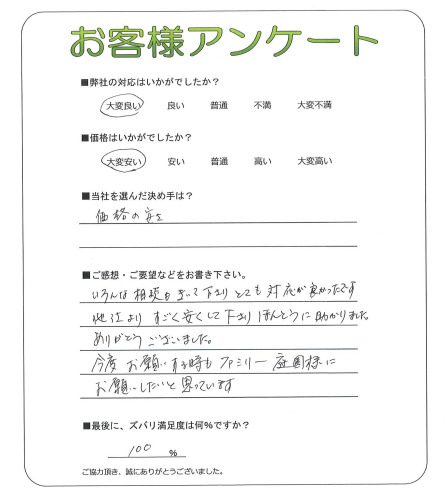 お客様アンケート
■弊社の対応はいかがでしたか？
大変良い 良い 普通 不満 大変不満
■価格はいかがでしたか？
大変安い 安い 普通 高い 大変高い
■当社を選んだ決め手は？
価格の安さ
■ご感想・ご要望などをお書き下さい。
いろんな相談もきいて下さりとても対応が良かったです
他社よりすごく安くして下さりほんとうに助かりました。
ありがとうございました。
今度お願いする時もファミリー庭園様に
お願いしたいと思っています
■最後に、ズバリ満足度は何%ですか？
100 %
ご協力頂き、誠にありがとうございました。